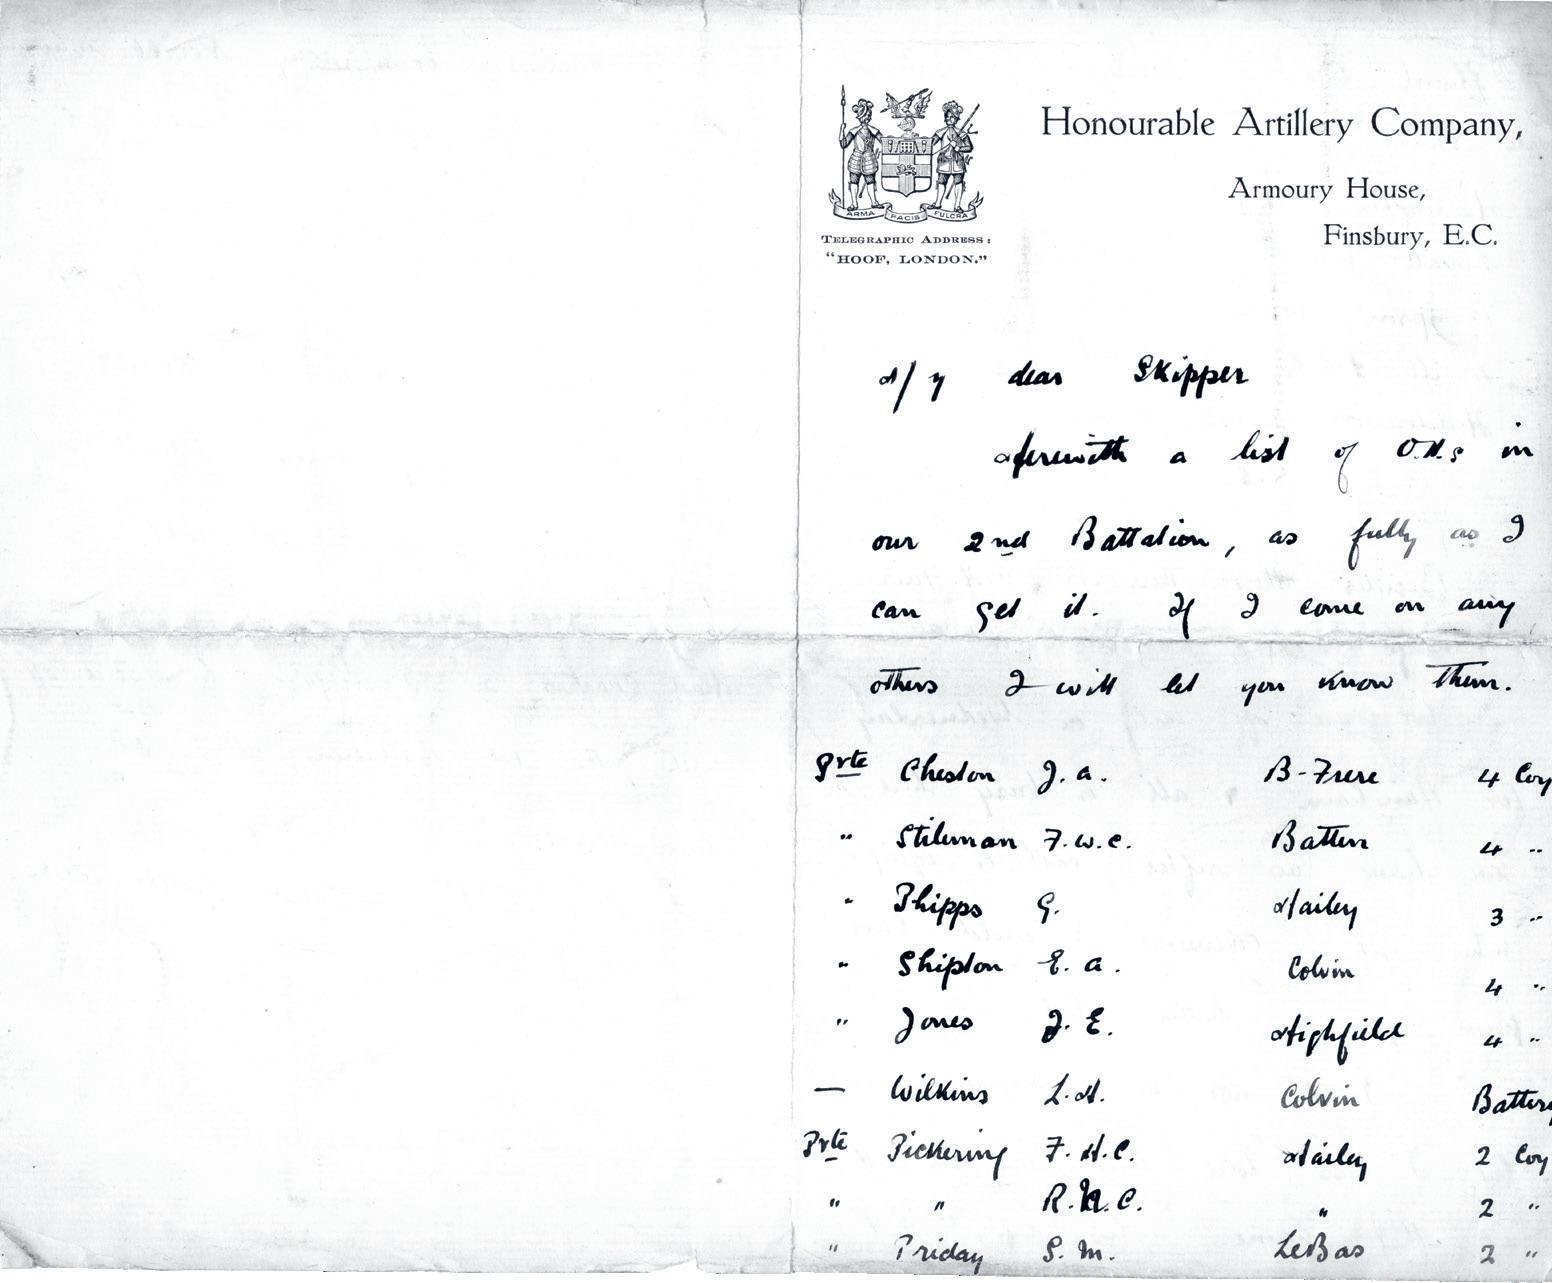 ARMA PACIS FULCRA
TELEGRAPHIC ADDRESS:
"HOOF, LONDON."
Honourable Artillery Company,
Armoury House,
Finsbury, E.C.
My dear Skipper
Herewith a list of O.H.s in
our 2nd Battalion, as fully as I
can get it. If I come on any
others I will let you know them.
Prte Cheston J. A. B-Frere 4 Coy
" Stileman F. W. C. Batten 4 "
" Phipps G. Hailey 3 "
" Shipton E. A. Colvin 4 "
" Jones J. E. Highfield 4 "
— Wilkins L. H. Colvin Battery
Prte Pickering F. H. C. Hailey 2 Coy
" " R. N. C. " 2 "
" Priday S. M. LeBas 2 "